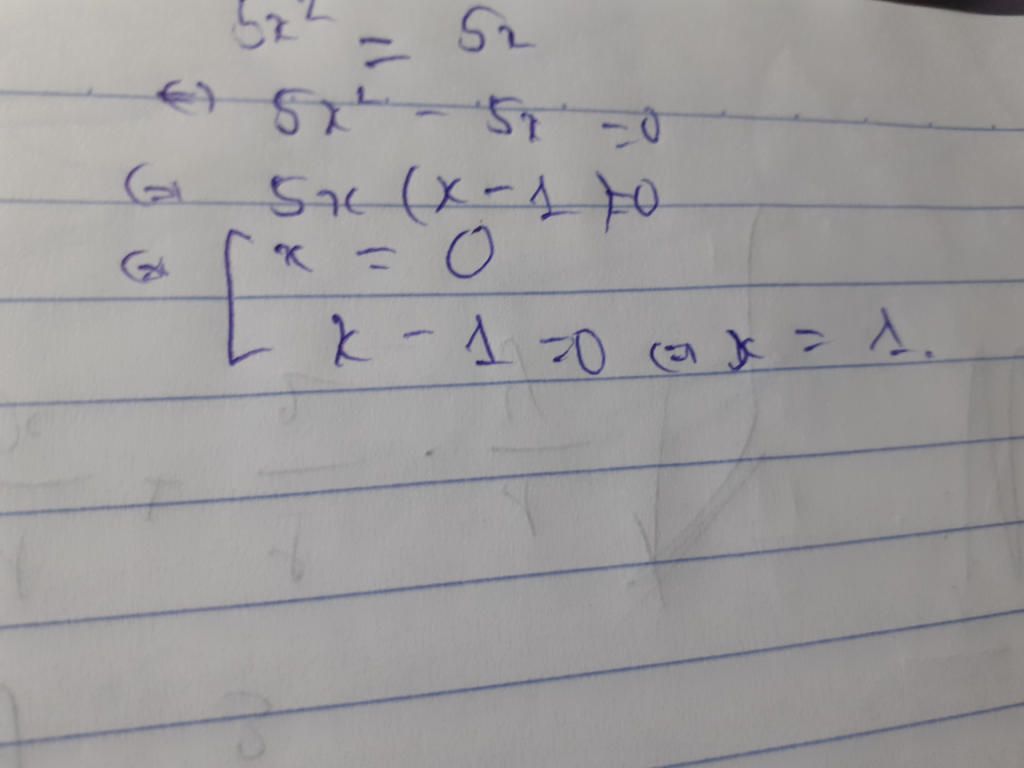 5x² = 5x
⇔ 5x² - 5x = 0
⇔ 5x (x - 1) = 0
⇔ [ x = 0
x - 1 = 0 ⇔ x = 1.